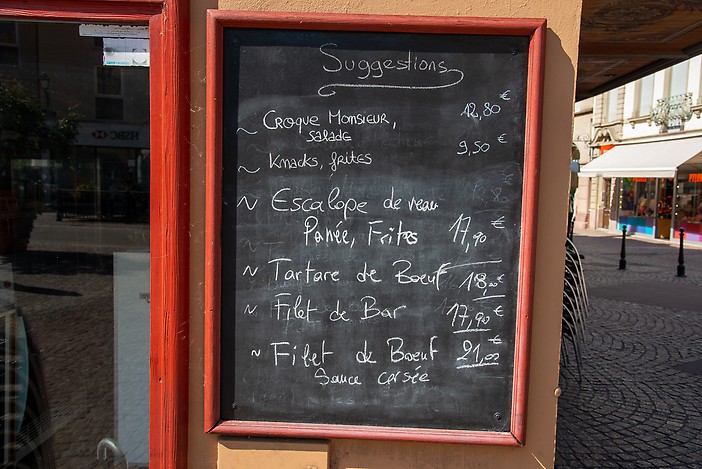 Suggestions
~ Croque Monsieur, 12,80 €
salade
~ Knacks, frites 9,50 €
~ Escalope de veau
Panée, Frites 17,90 €
~ Tartare de Boeuf 18,00 €
~ Filet de Bar 17,90 €
~ Filet de Boeuf 21,00 €
Sauce corsée
HSBC